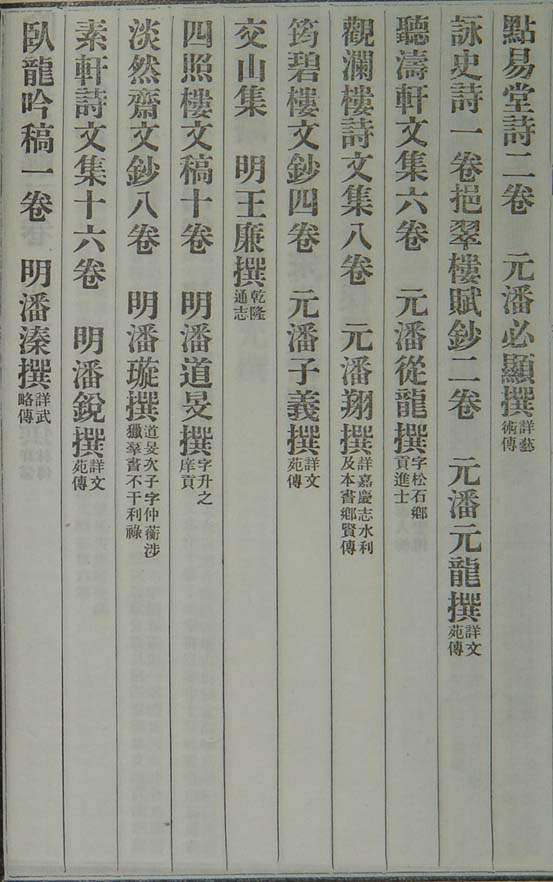 點易堂詩二卷　元潘必顯撰詳藝術傳
詠史詩一卷挹翠樓賦鈔二卷　元潘元龍撰詳文苑傳
聽濤軒文集六卷　元潘從龍撰字松石鄉貢進士
觀瀾樓詩文集八卷　元潘翔撰詳嘉慶志水利及本書鄉賢傳
筠碧樓文鈔四卷　元潘子義撰詳文苑傳
交山集　明王廉撰乾隆通志
四照樓文稿十卷　明潘道旻撰字升之庠貢
淡然齋文鈔八卷　明潘璇撰道旻次子字仲蘅涉獵羣書不干利祿
素軒詩文集十六卷　明潘銳撰詳文苑傳
臥龍吟稿一卷　明潘溱撰詳武略傳